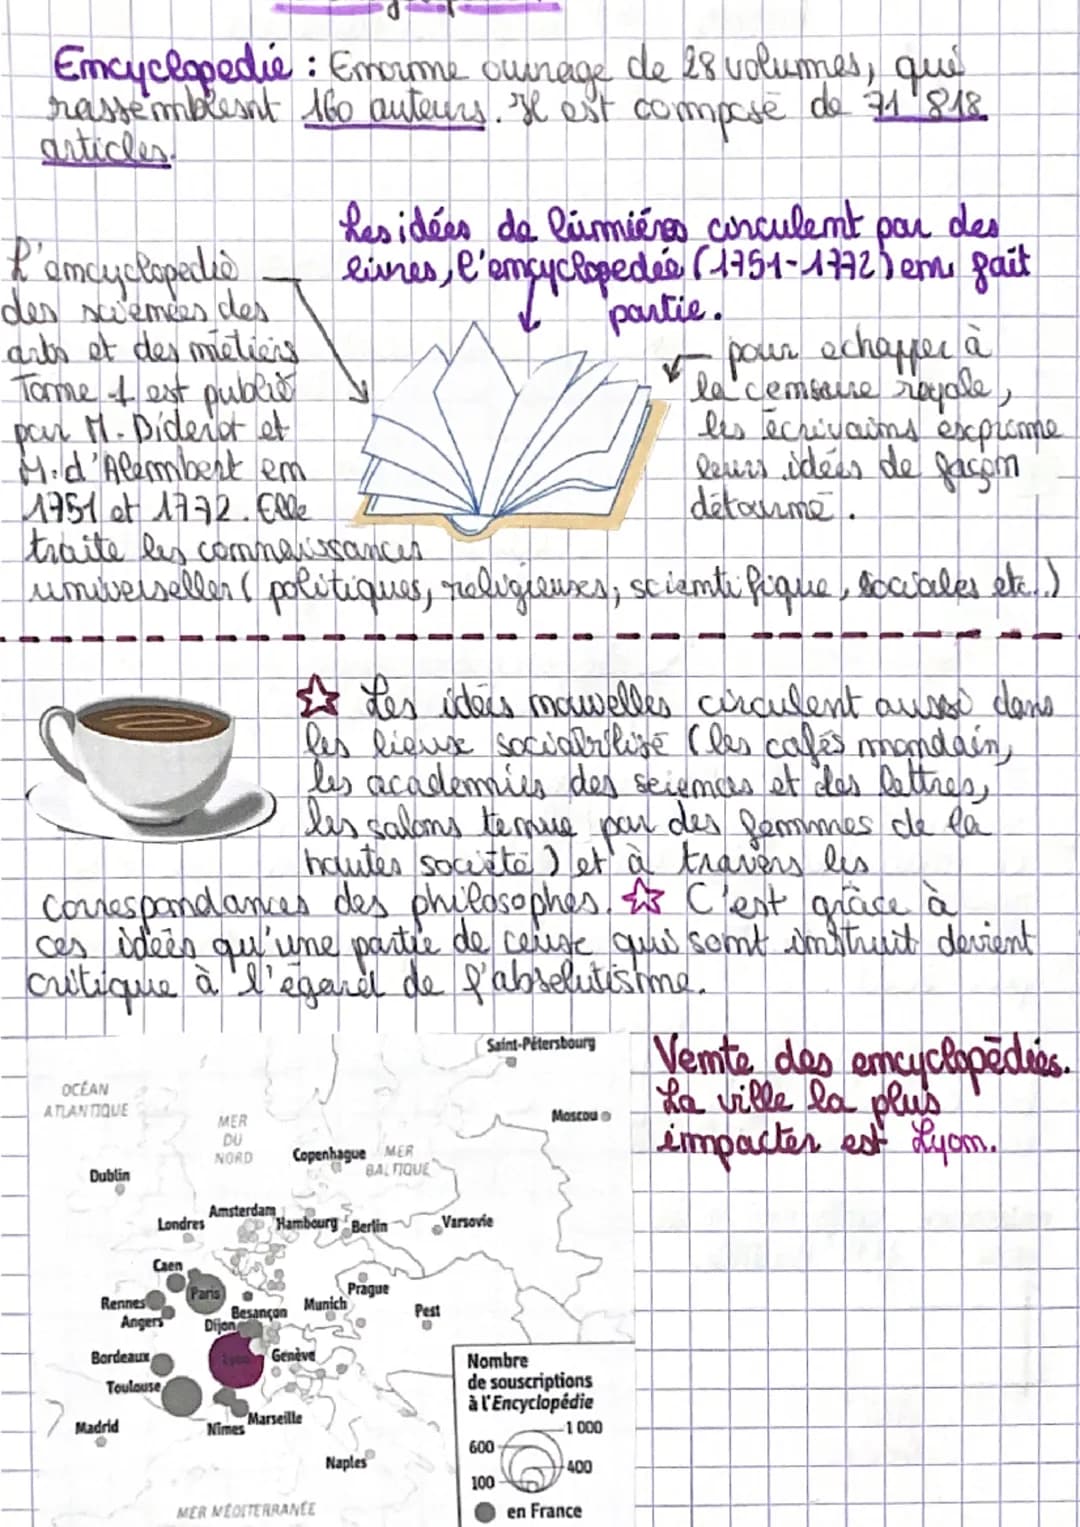 Encyclopedie : Enorme ouvrage de 28 volumes, qui
rassemblesnt 160 auteurs. Il est composé de 71 818
articles.
Les idées de lúmiéres circulent par des
livres, l'encyclopedée (1751-1772) en fait
partie.
L'encyclopedie
des sciences des
arts et des métiers
Tome 1 est publié
par M. Diderot et
M. d'Alembert en
1751 et 1772. Elle
traite les connaissances
universelles ( politiques, religieuses, scientifique, sociales etc..)
pour echapper à
la censure royale,
les écrivains exprime
leurs idées de façon
détourné.
☆ Les idées nouvelles circulent aussi dans
les lieux sociabilisé (les cafés mondain,
les academies des sciences et des lettres,
les salons tenue par des femmes de la
hautes société ) et à travers les
correspondances des philosophes. ☆ C'est grâce à
ces idées qu'une partie de ceux qui sont instruit devient
critique à l'égard de l'absolutisme.
Vente des encyclopédies.
La ville la plus
impacter est Lyon.
Saint-Pétersbourg
OCÉAN
ATLANTIQUE
Moscou
MER
DU
NORD
Copenhague
MER
BALTIQUE
Dublin
Amsterdam
Londres
Hambourg
Berlin
Varsovie
Caen
Paris
Prague
Rennes
Besançon
Munich
Pest
Angers
Dijon
Bordeaux
Lyon
Genève
Toulouse
Madrid
Nîmes
Marseille
Naples
MER MÉDITERRANÉE
Nombre
de souscriptions
à l'Encyclopédie
1 000
600
400
100
en France